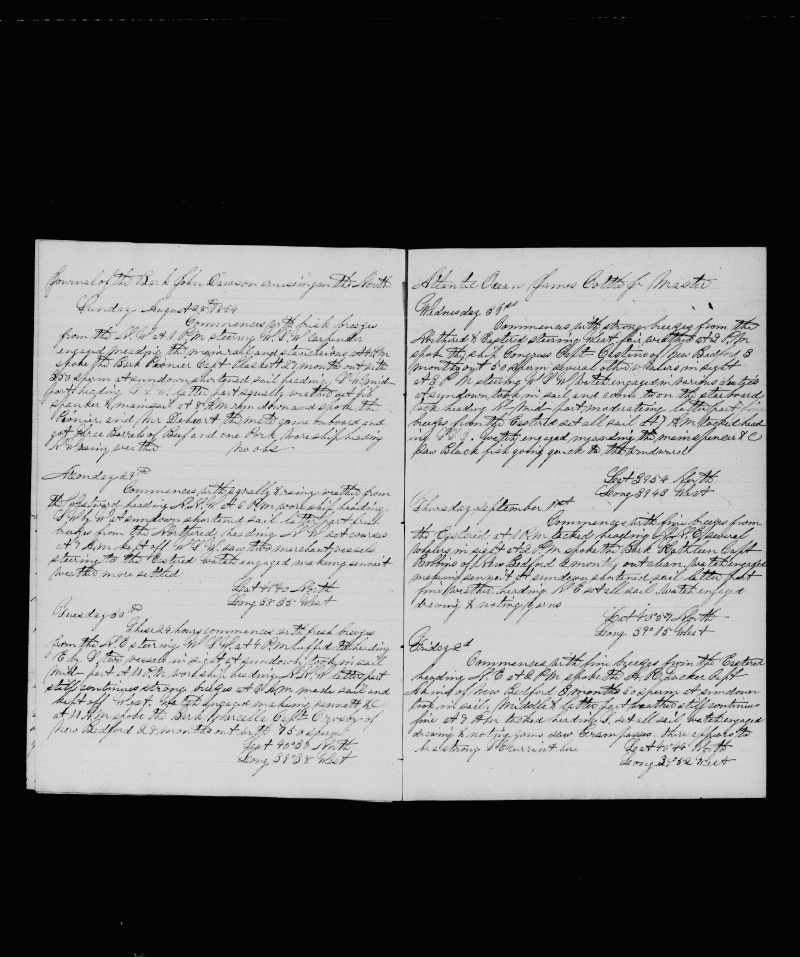 Journal of the Bark John Dawson cruising in the North
Sunday August 28th 1864
Commences with brisk breezes
from the N.W at 1 P.M steering W.S.W Carpinder
engaged mending the main rail and stanchions at 4 P.M
spoke the Bark Peonier Capt Haskett 27 months out with
350 sperm at sundown shortened sail heading S.W. mid-
part heading latter part squally weather
spanker & mainsail at 8 A.M ran down and spoke the
Peonier, and Mr the Mate gone onboard and
got three Barrels of Beef and one Pork, wore ship heading
N.W rainy weather No obs
Monday 29th
Commences with squally & rainy wether from
the Westured heading N.N.W at 6 P.M wore ship heading
S.W by W at sundown shortened sail latter part brisk
breezes from the Northerd heading W set courses
at 7 A.M. kept off W.S.W. saw two merchant vessels
steering to the Estred watch engaged making sennet
weather more settled
Lat 40°40 North
Long 38°35 West
Tuesday 30th
These 24 hours commences with fresh breezes
from the N.E stering W.S.W. at 4 P.M luffed to heading
E by S, two vessels in sight at sundown took in sail
Midd part at 11 P.M wore ship heading N.N.W latter part
still continues strong breezes at 9 A.M made sail and
kept off West. Watch engaged making sennett &C
at 11 A.M spoke the Bark Marcella Capt Crosby of
New Bedford 28 months out with 750 sperm
Lat 40°38 North
Long 39°38 West
Atlantic Ocean James Cottle Jr Master
Wednesday 31st
Commences with strong breezes from the
Northred & Eastrid steering West fair weather at 2 P.M
spoke the ship Congress Capt Castins of New Bedford 3
months out 50 sperm several other whalers in sight
at 3 P.M steering W.S.W watch engaged in various duties
at sundown took in sail and come to on the starboard
tack heading Mid-part moderating latter part fine
breezes from the Eastrid set all sail at 7 A.M tacked head
ing S.S.E. Watch engaged in mending the main spencer & C
saw Black fish going quick to the windward
Lat 39°54 North
Long 39°43 West
Thursday september 1st
Commences with fine breezes from
the Eastrid at 1 P.M tacked heading N.N.E several
whalers in sight at 2 P.M spoke the Bark Kathleen Capt
Robbins of New Bedford 2 months out clean, watch engaged
making sennet at sundown shortened sail latter part
fine weather, heading N.E set all sail watch engaged
drawing & noting yarns
Lat 40°59 North
Long 39°15 West
Friday 2d
Commences with fine breezes from the Eastered
heading N.E at 2 P.M spoke the A. R. Tucker Capt
of New Bedford 3 months 60 sperm at sundown
took in sail, Middle & latter part weather still continues
fine at 7 A.M tacked heading S. set all sail watch engaged
drawing & noting yarns saw Grampasses. there appears to
be a strong currant here Lat 40°44 North
Long 39°52 West